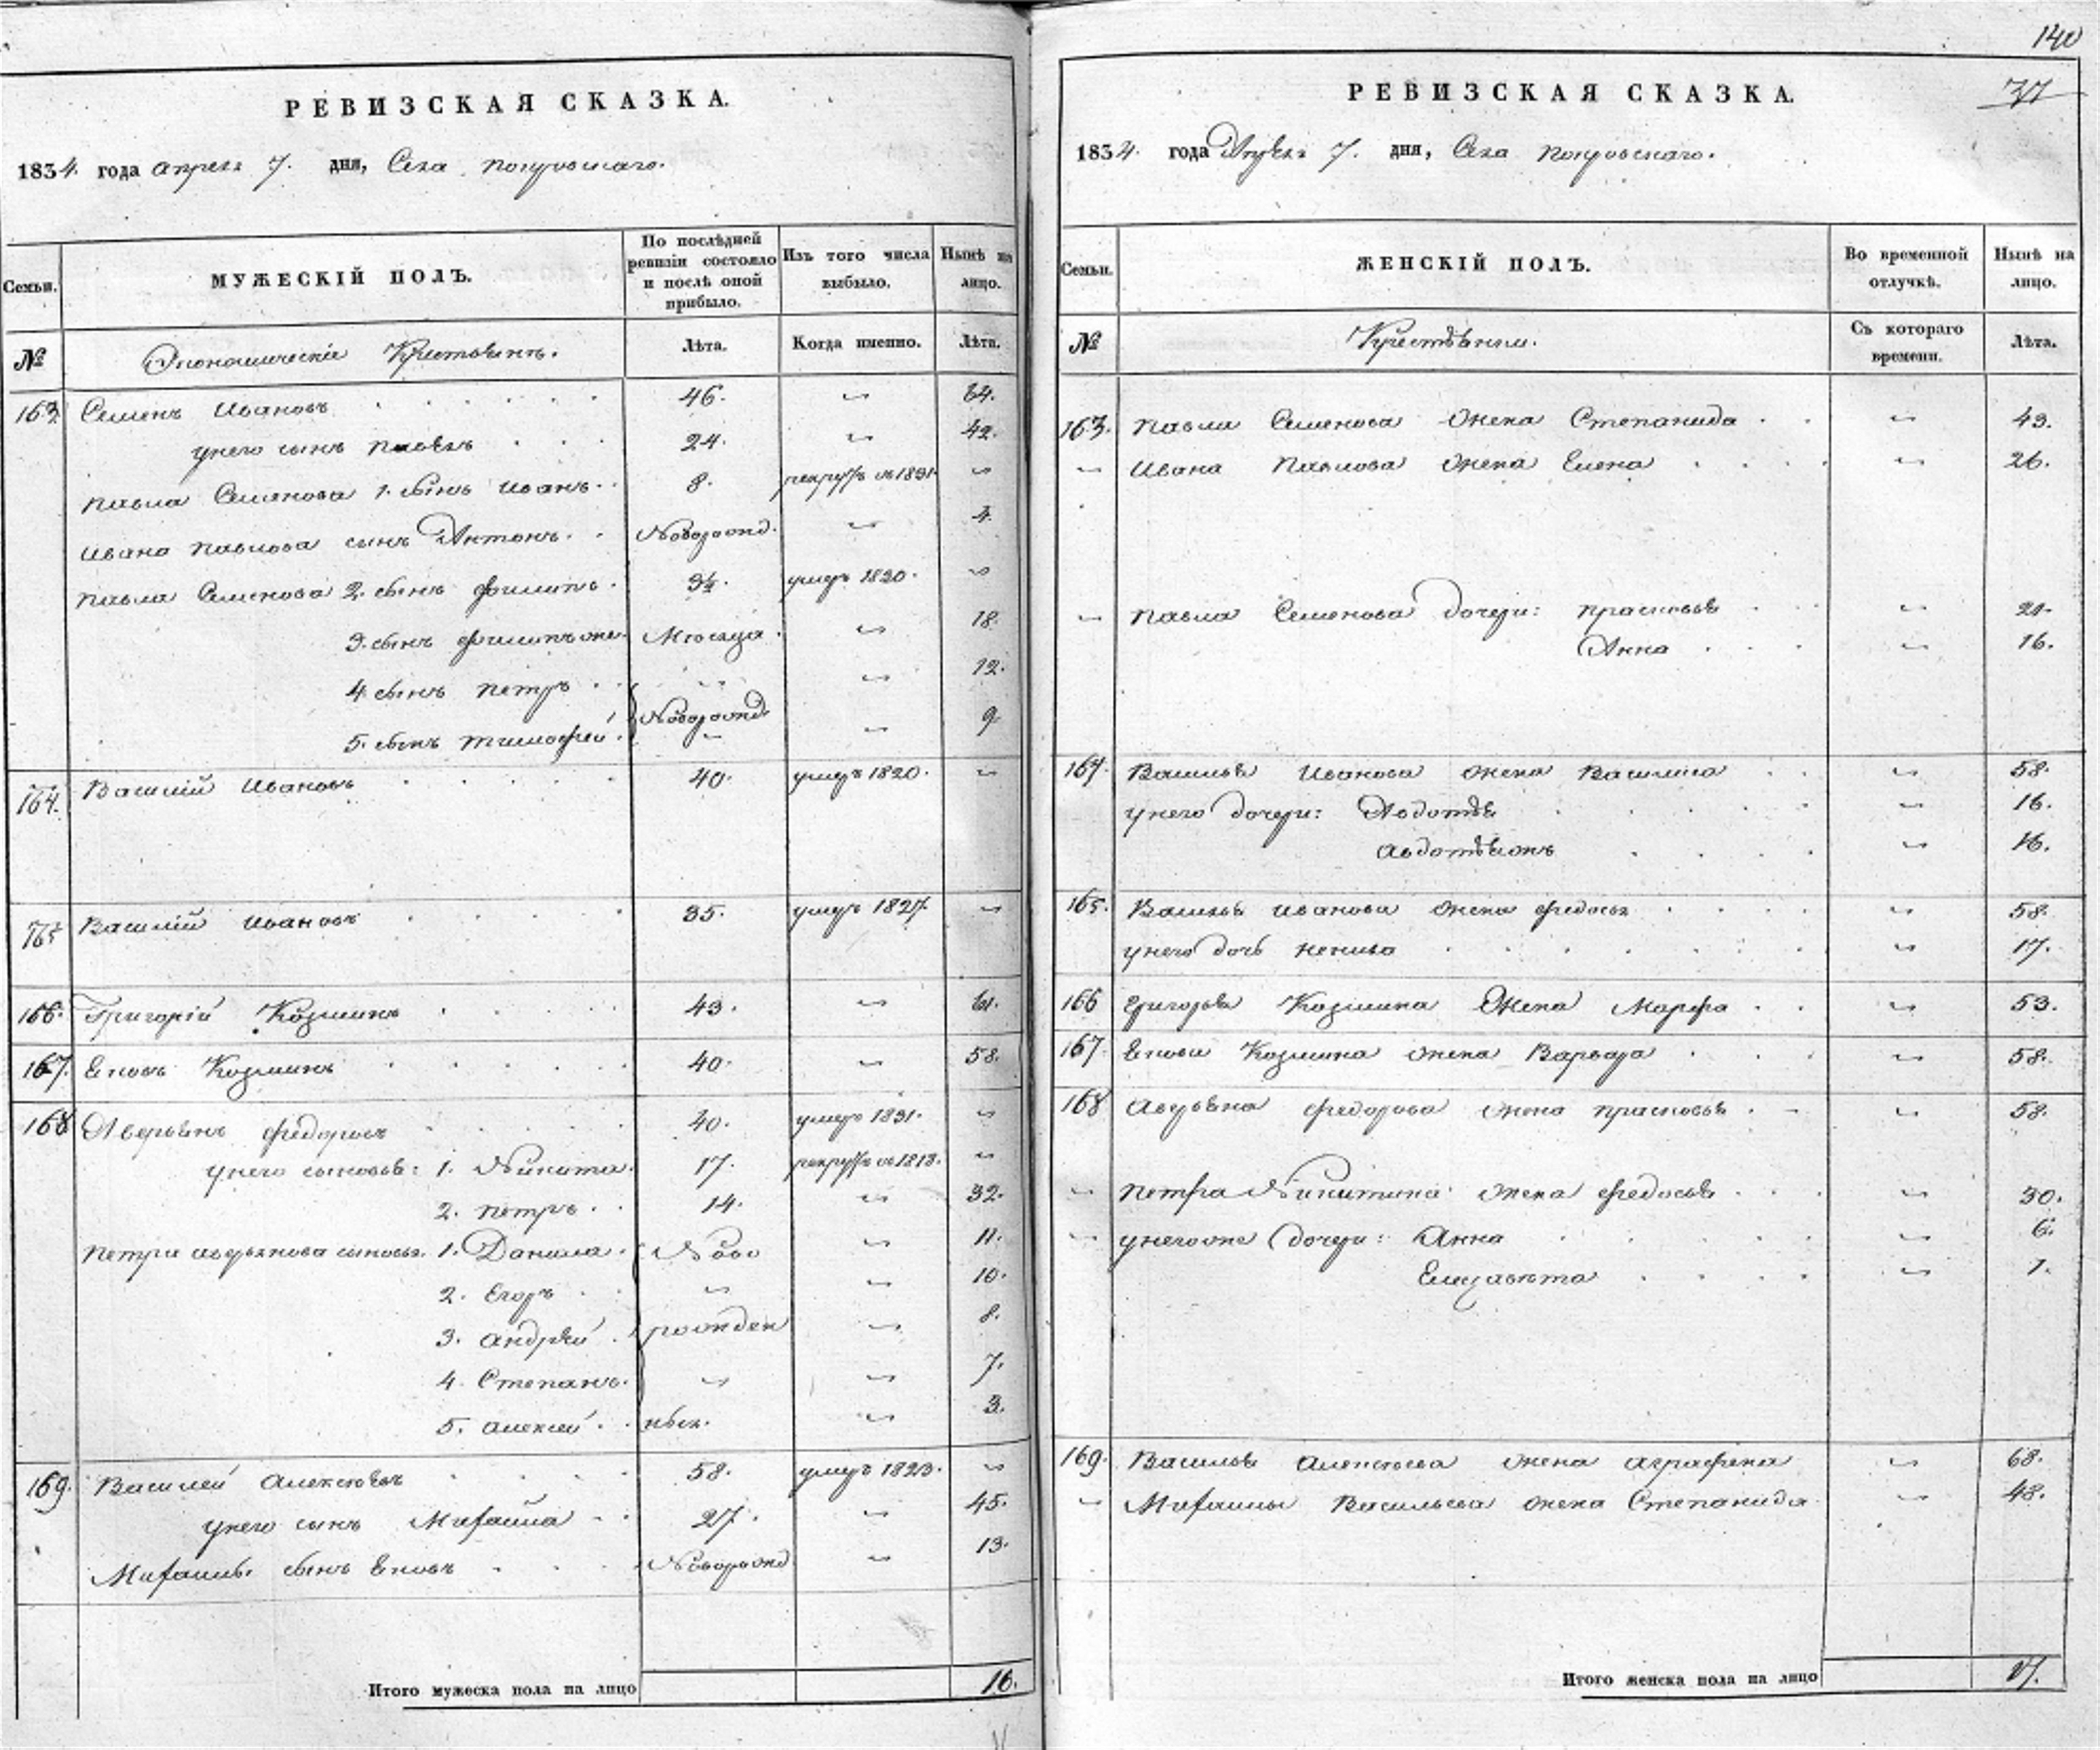 РЕВИЗСКАЯ СКАЗКА.
1834. года апреля 7. дня, Села покровскаго.
Семьи. МУЖЕСКІЙ ПОЛЪ. По послѣдней ревизіи состояло и послѣ оной прибыло. Изъ того числа выбыло. Нынѣ на лицо.
№ Экономическіе Крестьянъ. Лѣта. Когда именно. Лѣта.
163. Семенъ Ивановъ 46. 64.
унего сынъ Павелъ 24. 42.
Павла Семенова 1. сынъ Иванъ 8. 1831
Ивана Павлова сынъ Антонъ. Новорожд. 4.
Павла Семенова 2. сынъ филипъ. 3½. умеръ 1820.
3. сынъ филипъ же Месяца 18.
4 сынъ петръ 12.
Новорожд.
5. сынъ тимофей. 9.
164. Василій Ивановъ 40. умеръ 1820.
165 Василій Ивановъ 35. умеръ 1827
166. Григорій Козминъ 43. 61.
167. Еповъ Козминъ 40. 58.
168 Аверьянъ федоровъ 40. умеръ 1831.
унего сыновья: 1. Никита. 17. 1813.
2. петръ 14. 32.
Петра аверьянова сыновья. 1. Данила. Ново 11.
2. Егоръ 10.
3. андрей рожден 8.
4. Степанъ. 7.
5. алексей ныя. 3.
169. Василей алексѣевъ 58. умеръ 1823.
унего сынъ Михайла 27. 45.
Михайлы сынъ Еповъ Новорожд 13.
Итого мужеска пола на лицо 16.
140
37
РЕВИЗСКАЯ СКАЗКА.
1834. года Апреля 7. дня, Села покровскаго.
Семьи. ЖЕНСКІЙ ПОЛЪ. Во временной отлучкѣ. Нынѣ на лицо.
№ Крестьянки. Съ котораго времени. Лѣта.
163. Павла Семенова жена Степанида 43.
Ивана Павлова жена Елена 26.
Павла Семенова дочери: прасковья 21.
Анна 16.
164. Василья Иванова жена Василиса 58.
унего дочери: Авдотья 16.
авдотья жъ 16.
165. Василья иванова жена федосья 58.
унего дочь 17.
166 Григорья Козмина Жена Марфа 53.
167 Епова Козмина жена Варвара 58.
168 аверьяна федорова жена прасковья 58.
петра Никитина жена федосья 30.
унего же дочери: Анна 6.
Елизавета 1.
169. Василья алексѣева жена аграфена 68.
Михайлы Васильева жена Степанида 48.
Итого женска пола на лицо 17.